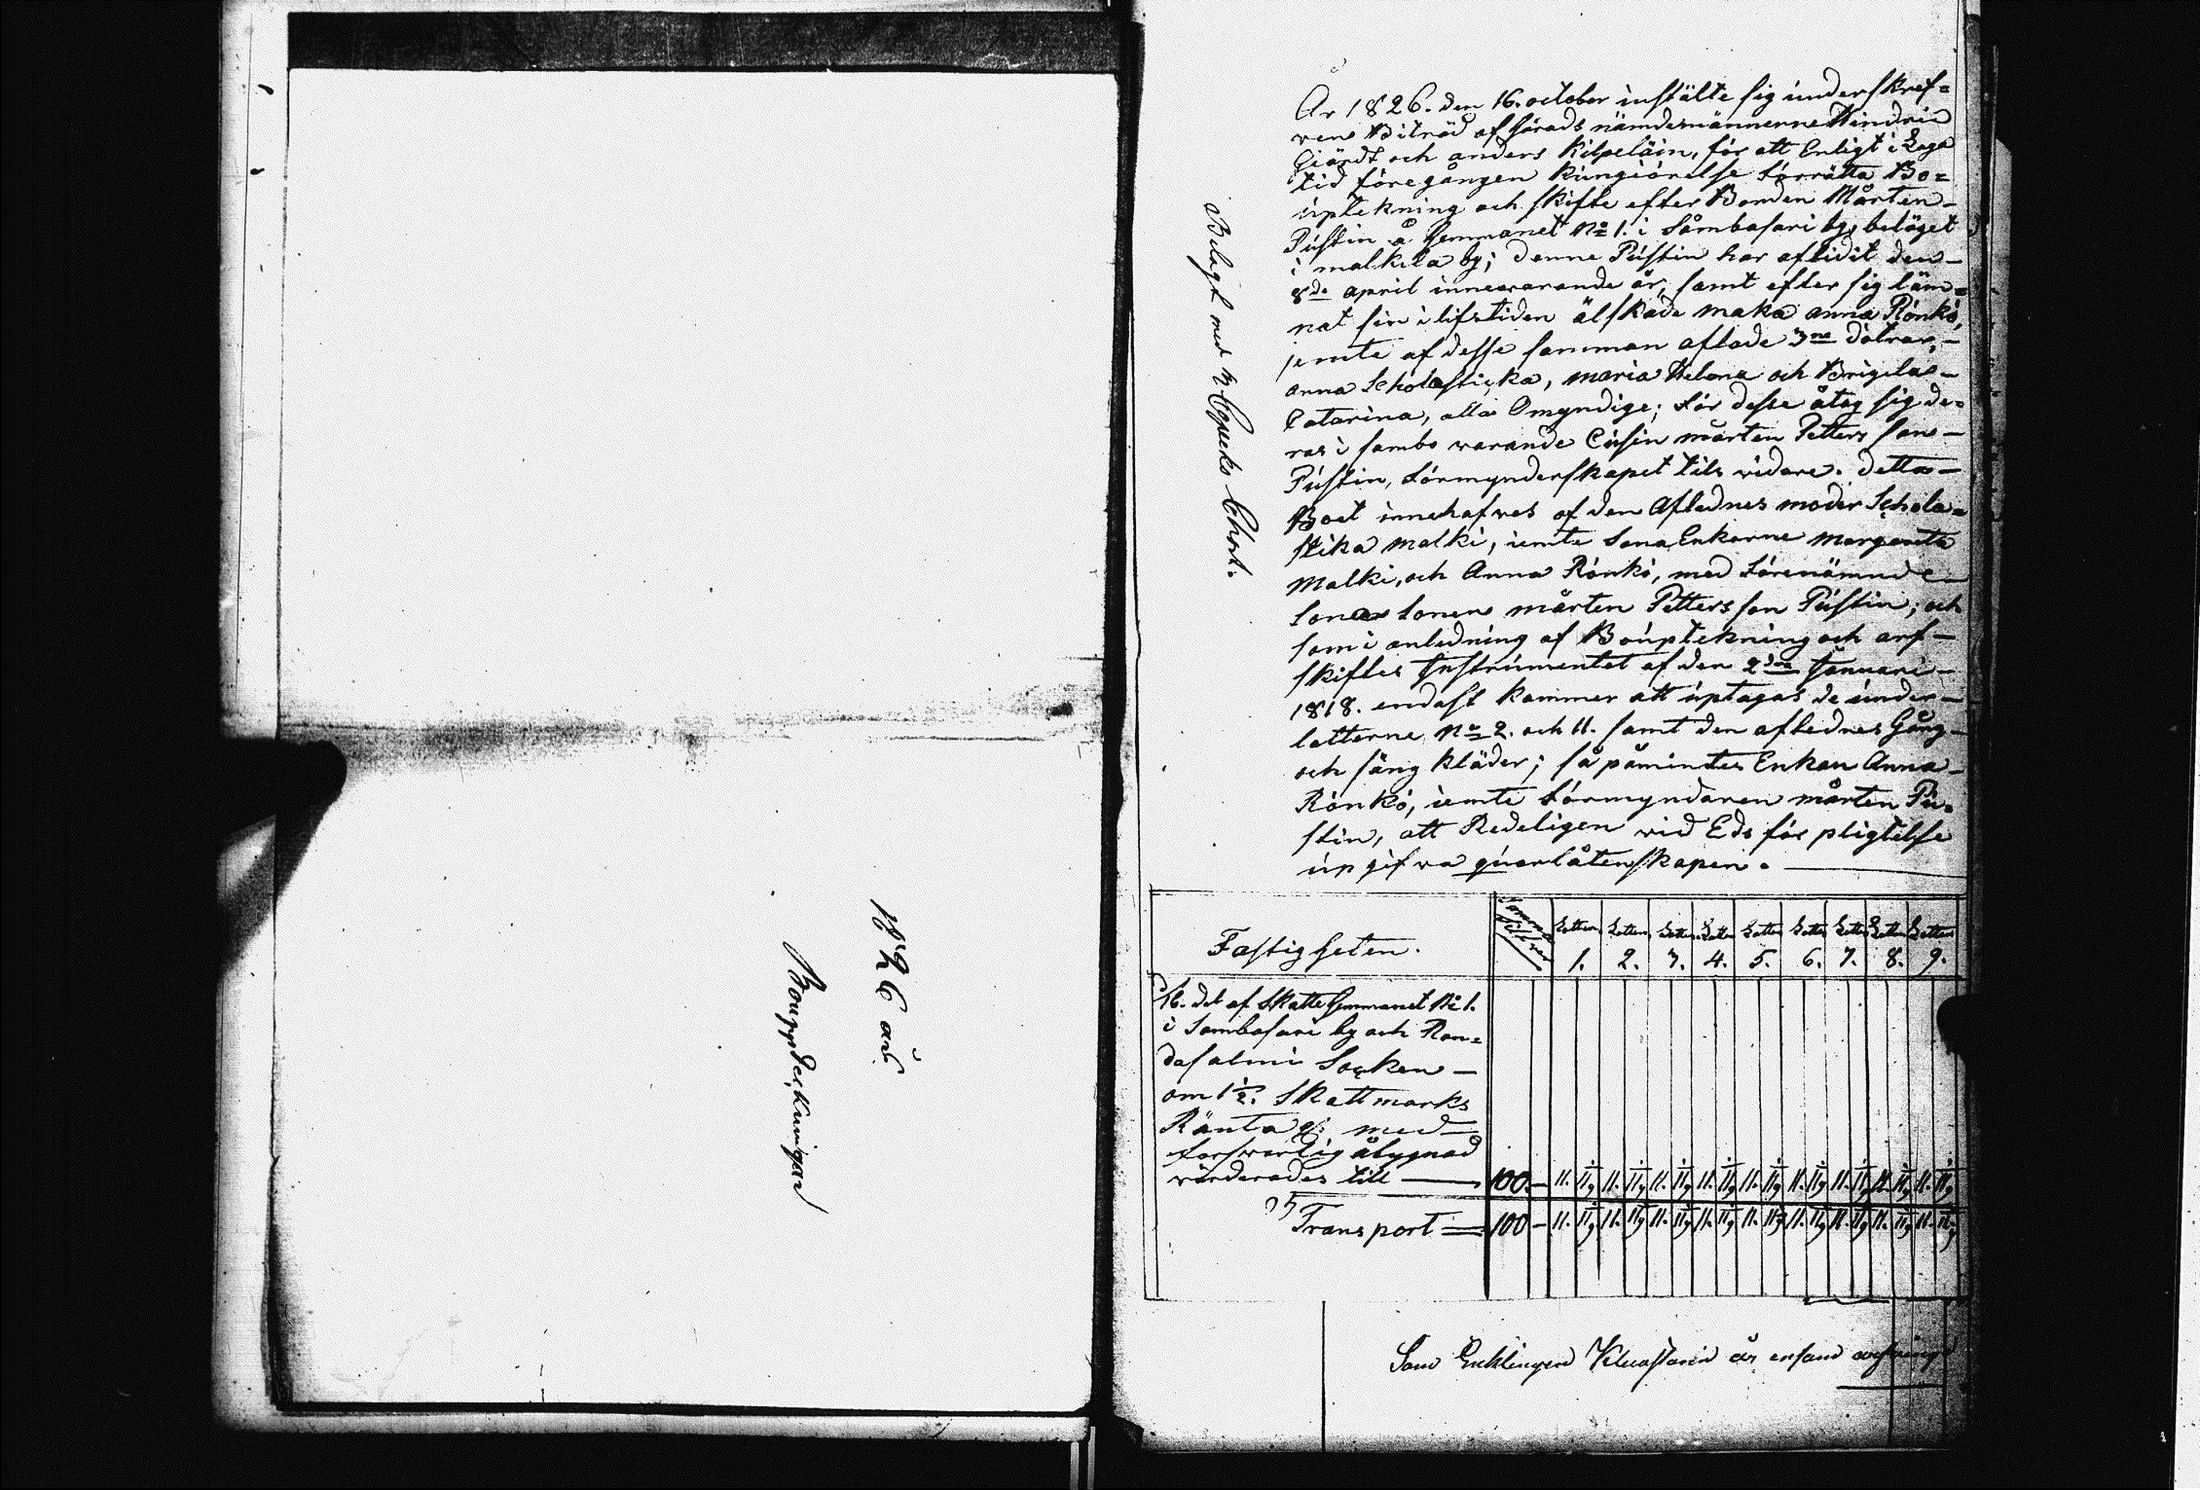 1826 års
Bouppdeckningar
Belagt med 2 Copeks Chart.
År 1826. den 16. october instälte sig underskref=
vene Biträd af härads nämdemännerne Hindric
Giärdt och anders Kilpeläin, för att Enligt i Laga
tid föregången kungiörelse förrätta Bo=
uptekning och skifte efter Bonden Mårten
Pústin å hemmanet No 1. i Sambasari by, beläget
i malkila by; denne Pústin har aflidit den
8de april innevarande år, samt efter sig läm=
nat sin i lifstiden älskade maka anna Rönkö,
jemte af desse samman aflade 3ne dötrar,
anna Scholasticka, maria Helena och Brigita
Catarina, alla Omyndige; för desse åtog sig de=
ras i sambo varande Cusin mårten Petters son
Pústin, förmynderskapet tils vidare. detta
Boet innehafves af den Aflednes moder Schola=
stika malki, iemte Sona Enkorne margareta
Malki, och Anna Rönkö, med förenämnde
Sona Sonen mårten Petters son Pústin; och
som i anledning af Bouptekning och arf
skiftes Instrumentet af den 2dra Januari
1818. endast kommer att uptagas de under
lotterne No 2. och 11. samt den aflednes Gång
och säng kläder; så påmintes Enkan Anna
Rönkö, iemte förmyndaren mårten Pú=
stin, att Redeligen vid Eds för pligtelse
up gifva qvarlåtenskapen.
Fastigheten. Lotten 1. Lotten 2. Lotten 3. Lotten 4. Lotten 5. Lotten 6. Lotten 7. Lotten 8. Lotten 9.
16. del af Skatte hemmanet No 1.
i Sambasari by och Ran=
dasalmi Socken
om 1 1/2. Skattmarks
Ränta med
forsvarlig åbygnad
värderades till 100.— 11. 11 1/9 11. 11 1/9 11. 11 1/9 11. 11 1/9 11. 11 1/9 11. 11 1/9 11. 11 1/9 11. 11 1/9 11. 11 1/9
Transport 100— 11. 11 1/9 11. 11 1/9 11. 11 1/9 11. 11 1/9 11. 11 1/9 11. 11 1/9 11. 11 1/9 11. 11 1/9 11. 11 1/9
Som Encklingen är ensam